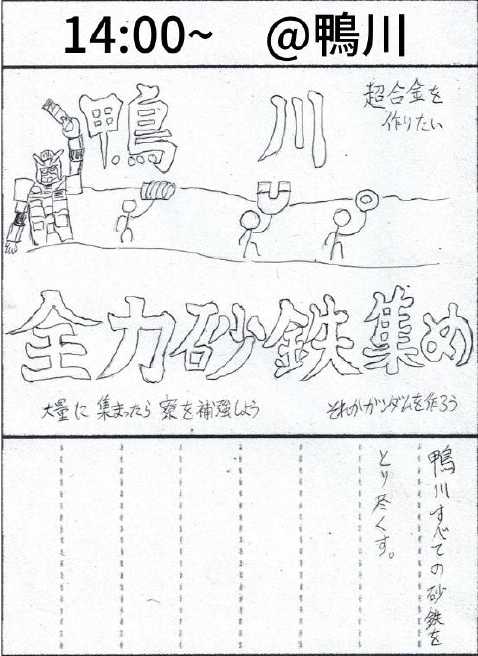 14:00~ @鴨川
鴨川
超合金を
作りたい
全力砂鉄集め
大量に集まったら寮を補強しよう
それかガンダムを作ろう
鴨川すべての砂鉄を
とり尽くす。